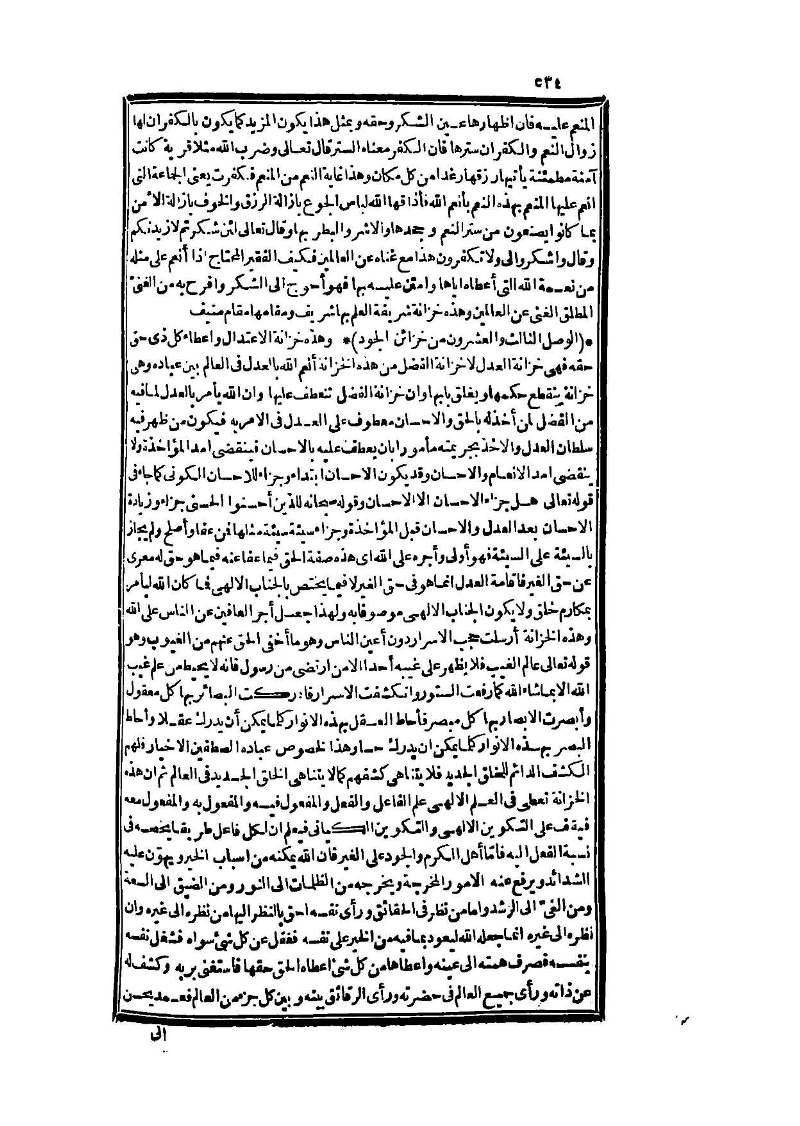 ٤٣٤
المنعم عليه فان اظهارها عين الشكر وحقه وبمثل هذا يكون المزيد كما يكون بالكفران لها
زوال النعم والكفران سترها فان الكفر معناه الستر قال تعالى وضرب الله مثلا قرية كانت
آمنة مطمئنة يأتيها رزقها رغدا من كل مكان وهذا غاية النعم من المنعم فكفرت يعنى الجماعة التى
انعم عليها المنعم بهذه النعم بأنعم الله فأذاقها الله لباس الجوع بازالة الرزق والخوف بازالة الأمن
بما كانوا يصنعون من ستر النعم وجحدها والاشر والبطر بها وقال تعالى لئن شكرتم لازيدنكم
وقال واشكروا لى ولا تكفرون هذا مع غناه عن العالمين فكيف الفقير المحتاج اذا أنعم على مثله
من نعمة الله التى أعطاه اياها وامتن عليه بها فهو أحوج الى الشكر وافرح به من الغنى
المطلق الغنى عن العالمين وهذه خزانة شريفة العلم بها شريف ومقامها مقام منيف
*(الوصل الثالث والعشرون من خزائن الجود)* وهذه خزانة الاعتدال واعطاء كل ذى حق
حقه فهى خزانة العدل لا خزانة الفضل من هذه الخزانة أنعم الله بالعدل فى العالم بين عباده وهى
خزانة ينقطع حكمها ويغلق بابها وان خزانة الفضل تنعطف عليها وان الله يأمر بالعدل لما فيه
من الفضل لمن أخذ له بالحق والاحسان معطوف على العدل فى الامر به فيكون من ظهر فيه
سلطان العدل والاخذ بجريمته مأمورا بان يعطف عليه بالاحسان فينقضى امد المؤاخذة ولا
ينقضى امد الانعام والاحسان وقد يكون الاحسان ابتداء وجزاء للاحسان الكونى كما جاء فى
قوله تعالى هل جزاء الاحسان الا الاحسان وقوله سبحانه للذين أحسنوا الحسنى جزاء وزيادة
الاحسان بعد العدل والاحسان قبل المؤاخذة وجزاء سيئة سيئة مثلها فمن عفا وأصلح ولم يجاز
بالسيئة على السيئة فهو أولى وأجره على الله اى هذه صفة الحق فيما عفا عنه فيما هو حق له معرى
عن حق الغير فاقامة العدل انما هو فى حق الغير لا فيما يختص بالجناب الالهى فما كان الله ليأمر
بمكارم خلق ولا يكون الجناب الالهى موصوفا به ولهذا جعل أجر العافين عن الناس على الله
وهذه الخزانة أرسلت حجب الاسرار دون أعين الناس وهو ما أخفى الحق عنهم من الغيوب وهو
قوله تعالى عالم الغيب فلا يظهر على غيبه أحدا الا من ارتضى من رسول فانه لا يحيط من علم غيب
الله الا بما شاء الله كما رفعت الستور وانكشفت الاسرار فادركت البصائر بها كل معقول
وأبصرت الابصار بها كل مبصر فأحاط العقل بهذه الانوار كل ما يمكن أن يدرك عقلا وأحاط
البصر بهذه الانوار كل ما يمكن ان يدرك حسا وهذا لخصوص عباده المصطفين الاخيار فلهم
الكشف الدائم للخلق الجديد فلا يتناهى كشفهم كما لا يتناهى الخلق الجديد فى العالم ثم ان هذه
الخزانة تعطى فى العلم الالهى علم الفاعل والفعل والمفعول فيه والمفعول به والمفعول معه
فيقف على التكوين الالهى والتكوين الكيانى فيعلم ان لكل فاعل طريقا يخصه فى
نسبة الفعل اليه فأما أهل الكرم والجود على الغير فان الله يمكنه من اسباب الخير ويهون عليه
الشدائد ويرفع عنه الامور المحرجة ويخرجه من الظلمات الى النور ومن الضيق الى السعة
ومن الغى الى الرشد واما من نظر فى الحقائق ورأى نفسه احق بالنظر اليها من نظره الى غيره وان
نظره الى غيره انما جعله الله ليعود بما فيه من الخير على نفسه فغفل عن كل شئ سواه فشغل نفسه
بنفسه فصرف همته الى عينه واعطاها من كل شئ اعطاه الحق حقها فاستغنى بربه وكشف له
عن ذاته ورأى جميع العالم فى حضرته ورأى الرقائق بينه وبين كل جزء من العالم فعمد يحسن
الى